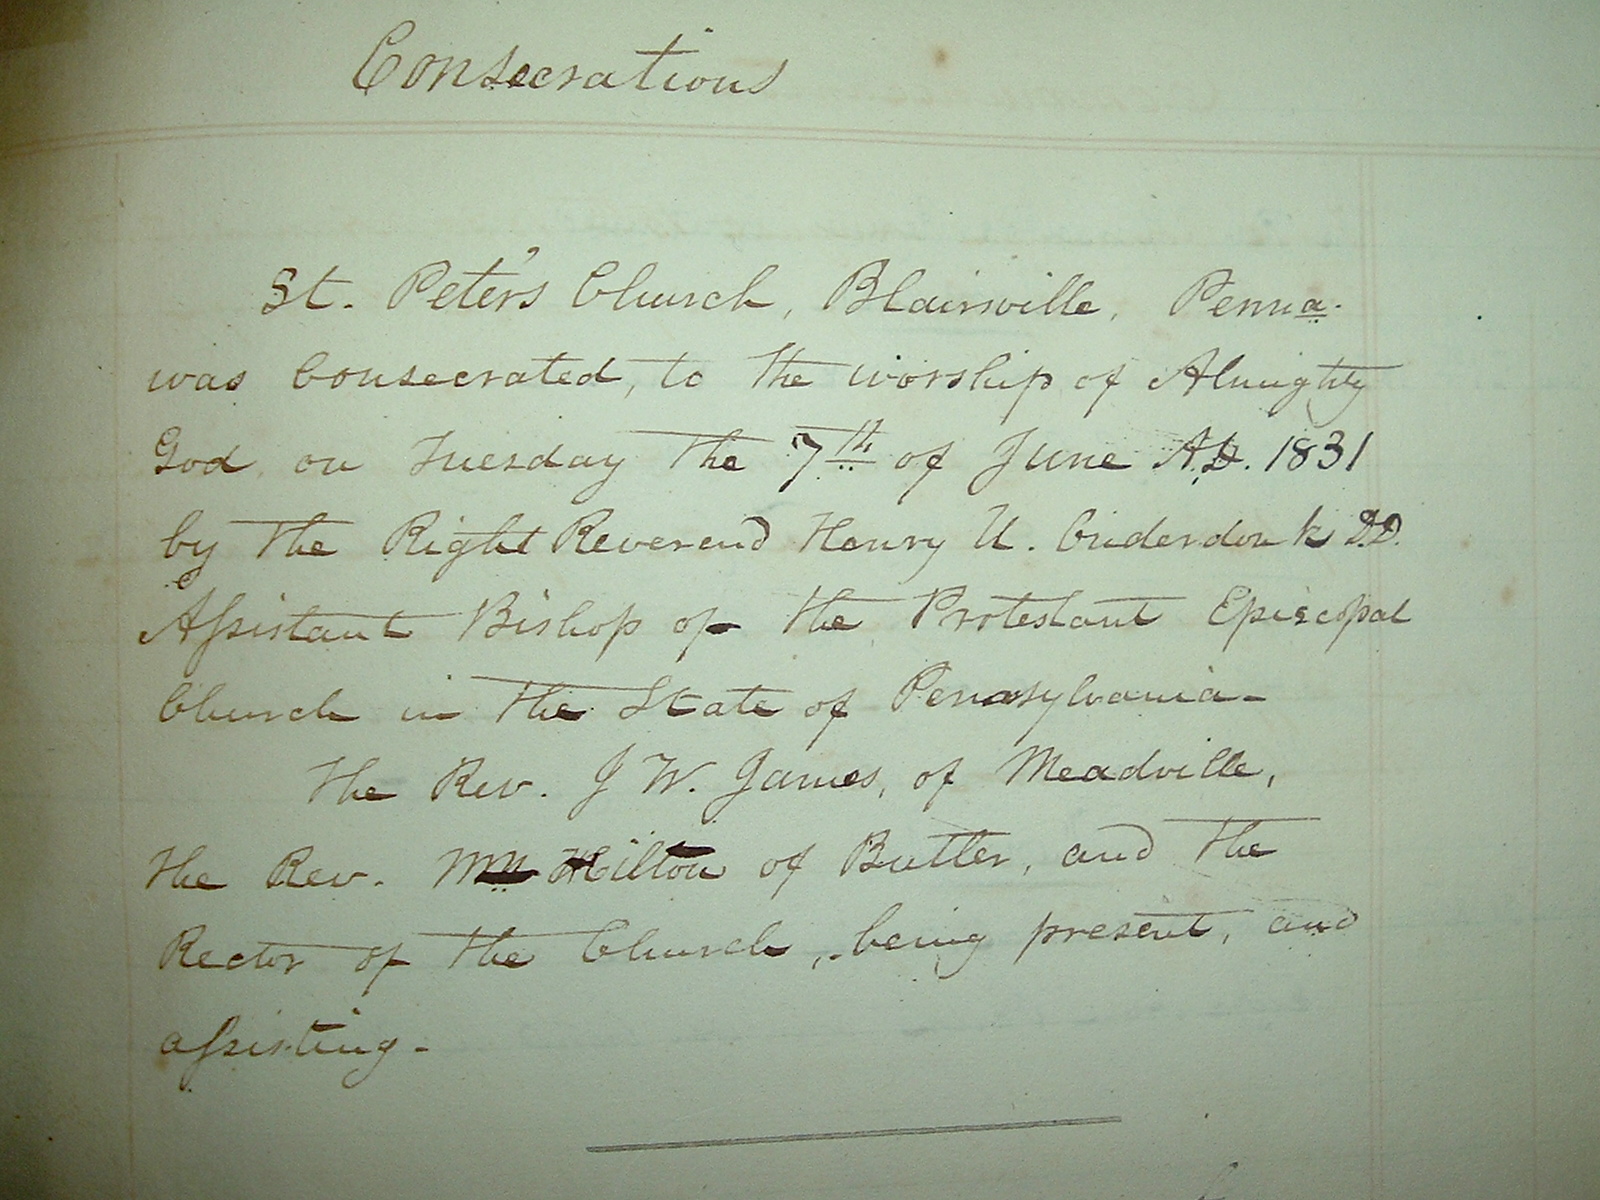 Consecrations
St. Peter's Church, Blairsville, Penna.
was Consecrated, to the worship of Almighty
God on Tuesday the 7th of June A.D. 1831
by the Right Reverend Henry U. Onderdonk D.D.
Assistant Bishop of the Protestant Episcopal
Church in the State of Pennsylvania-
The Rev. J W. James, of Meadville,
the Rev. Hilton of Butler, and the
Rector of the Church, being present, and
assisting-